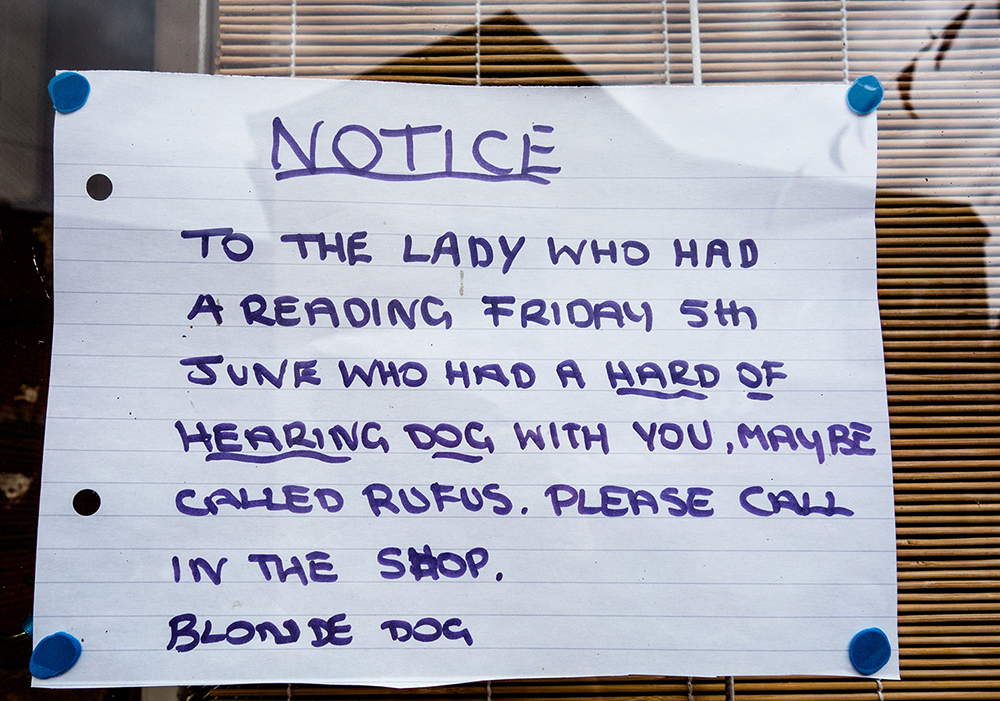 NOTICE
TO THE LADY WHO HAD
A READING FRIDAY 5th
JUNE WHO HAD A HARD OF
HEARING DOG WITH YOU, MAYBE
CALLED RUFUS. PLEASE CALL
IN THE SHOP.
BLONDE DOG